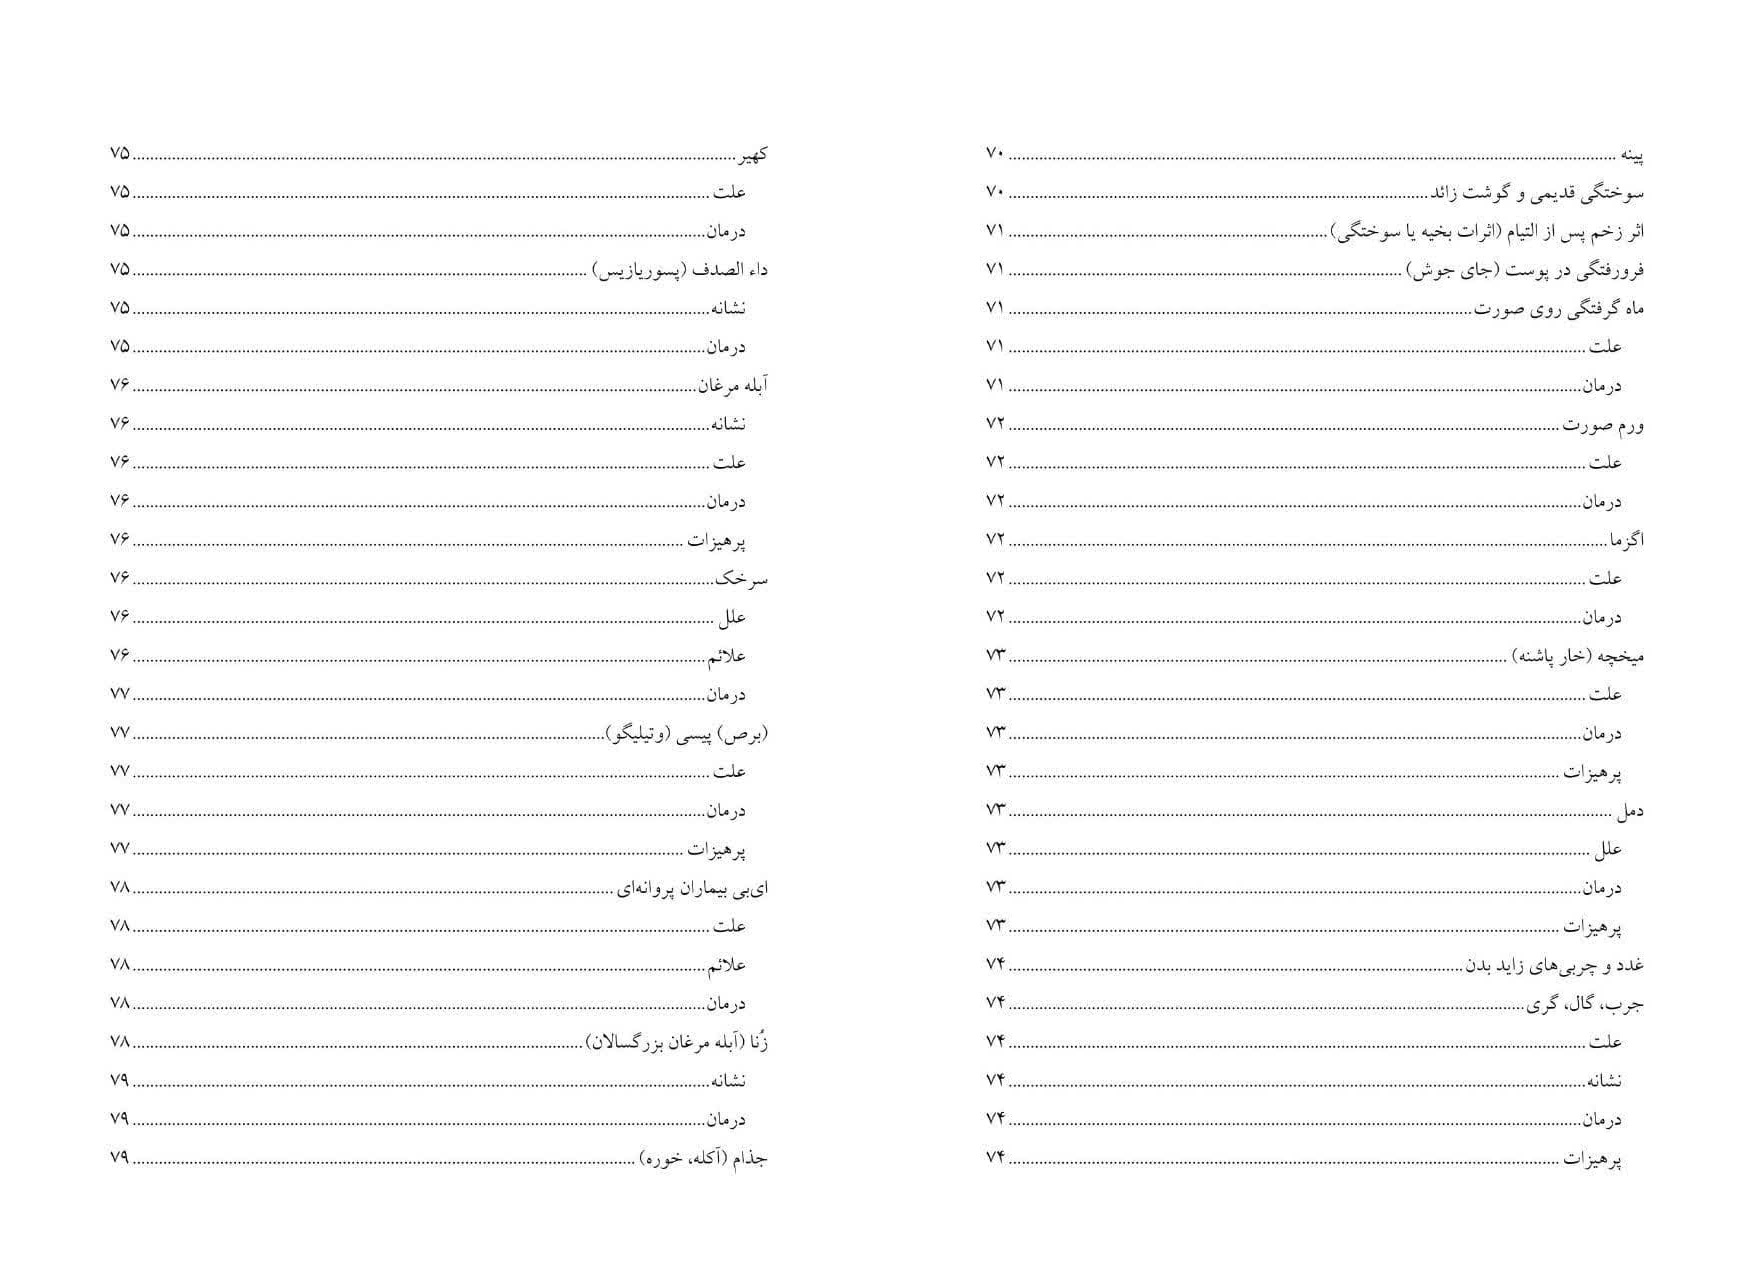 پینه ........ ۷۰
سوختگی قدیمی و گوشت زائد ........ ۷۰
اثر زخم پس از التیام (اثرات بخیه یا سوختگی) ........ ۷۱
فرورفتگی در پوست (جای جوش) ........ ۷۱
ماه گرفتگی روی صورت ........ ۷۱
علت ........ ۷۱
درمان ........ ۷۱
ورم صورت ........ ۷۲
علت ........ ۷۲
درمان ........ ۷۲
اگزما ........ ۷۲
علت ........ ۷۲
درمان ........ ۷۲
میخچه (خار پاشنه) ........ ۷۳
علت ........ ۷۳
درمان ........ ۷۳
پرهیزات ........ ۷۳
دمل ........ ۷۳
علل ........ ۷۳
درمان ........ ۷۳
پرهیزات ........ ۷۳
غدد و چربی‌های زاید بدن ........ ۷۴
جرب، گال، گری ........ ۷۴
علت ........ ۷۴
نشانه ........ ۷۴
درمان ........ ۷۴
پرهیزات ........ ۷۴
کهیر ........ ۷۵
علت ........ ۷۵
درمان ........ ۷۵
داء الصدف (پسوریازیس) ........ ۷۵
نشانه ........ ۷۵
درمان ........ ۷۵
آبله مرغان ........ ۷۶
نشانه ........ ۷۶
علت ........ ۷۶
درمان ........ ۷۶
پرهیزات ........ ۷۶
سرخک ........ ۷۶
علل ........ ۷۶
علائم ........ ۷۶
درمان ........ ۷۷
(برص) پیسی (وتیلیگو) ........ ۷۷
علت ........ ۷۷
درمان ........ ۷۷
پرهیزات ........ ۷۷
ای‌بی بیماران پروانه‌ای ........ ۷۸
علت ........ ۷۸
علائم ........ ۷۸
درمان ........ ۷۸
زُنا (آبله مرغان بزرگسالان) ........ ۷۸
نشانه ........ ۷۹
درمان ........ ۷۹
جذام (آکله، خوره) ........ ۷۹